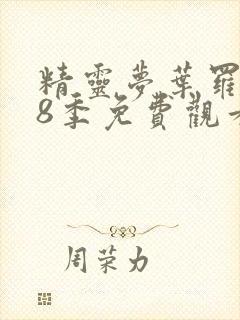 精靈夢葉羅
8季免費觀
周荣力